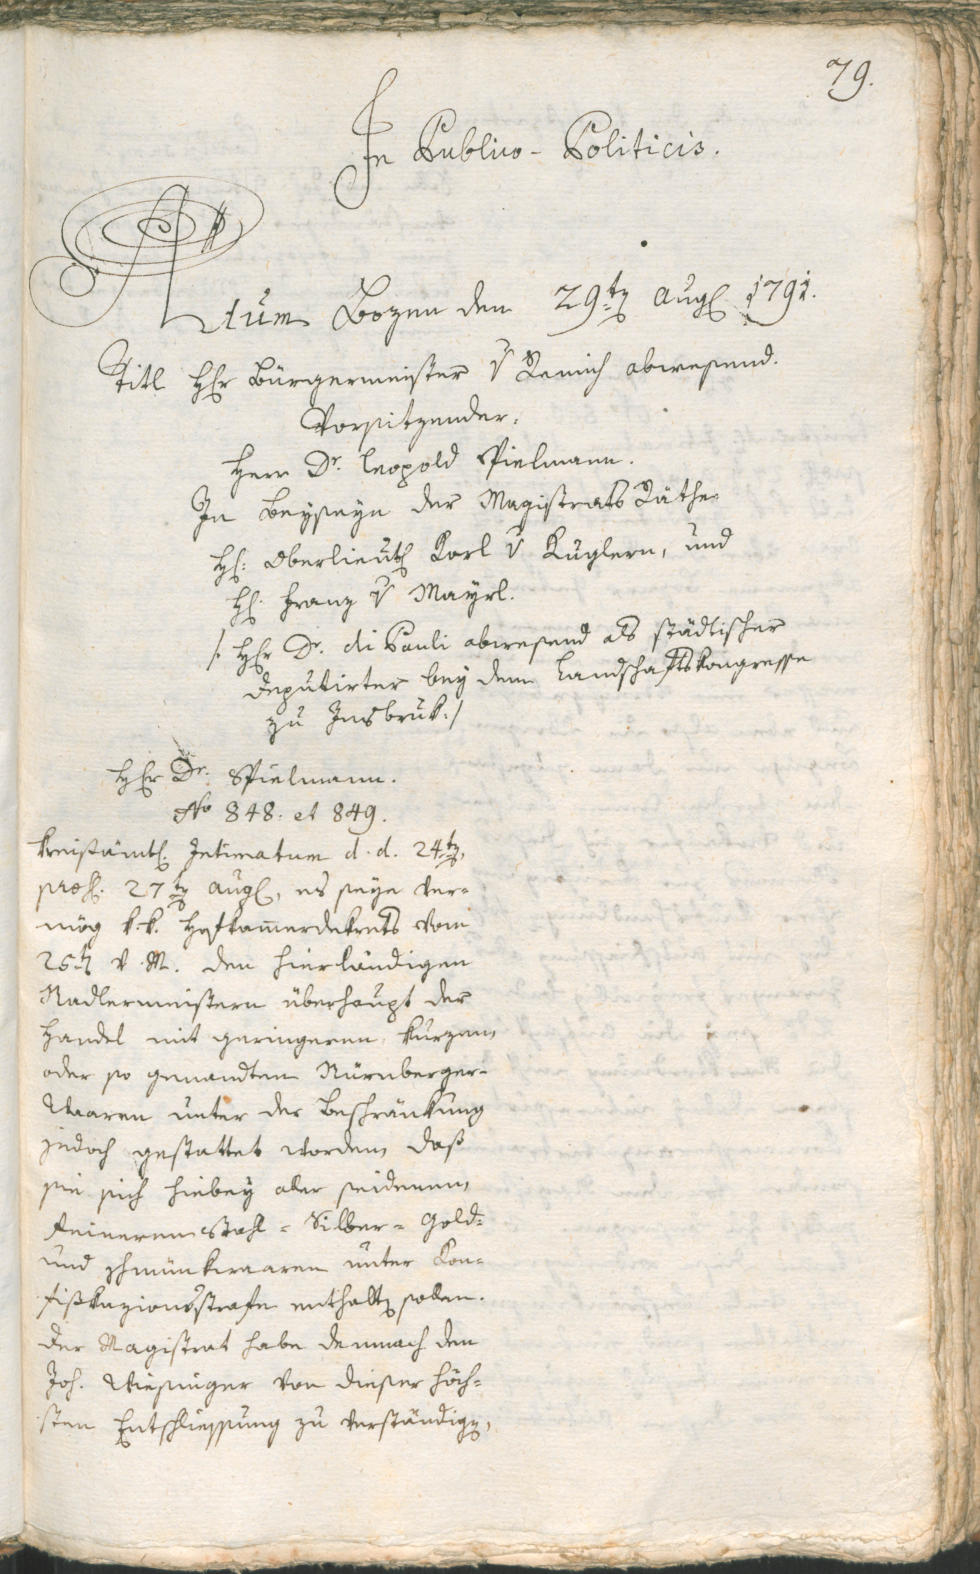 79.
In Publico-Politicis.
Actum Bozen den 29t Aug 1791.
Titl Hr Bürgermeister v Remich abwesend.
Vorsitzender:
Herr Dr. Leopold Spielmann.
In Beyseyn der Magistrats Räthe
H: Oberlieut Karl v Kuglern, und
H. Franz v Mayrl.
/: Hr Dr. di Pauli abwesend als städtischer
Deputirter bey dem Landschaftskongresse
zu Insbruk :/
Hr Dr. Spielmann.
No 848. et 849.
Kreisämtl. Intimatum d. d. 24t,
præs. 27t Aug, es seye ver-
mög k. k. Hofkam̄erdekrets vom
25t v. M. den hierländigen
Nadlermeistern überhaupt der
Handel mit geringeren kurzen
oder so genandten Nürnberger-
Waaren unter der Beschränkung
jedoch gestattet worden, daß
sie sich hiebey aller seidenen,
feineren Stahl- Silber- Gold-
und Schmukwaaren unter Kon-
fißkazionsstrafe enthalt sollen.
Der Magistrat habe demnach den
Joh. Wiesinger von dieser höch-
sten Entschliessung zu verständig,